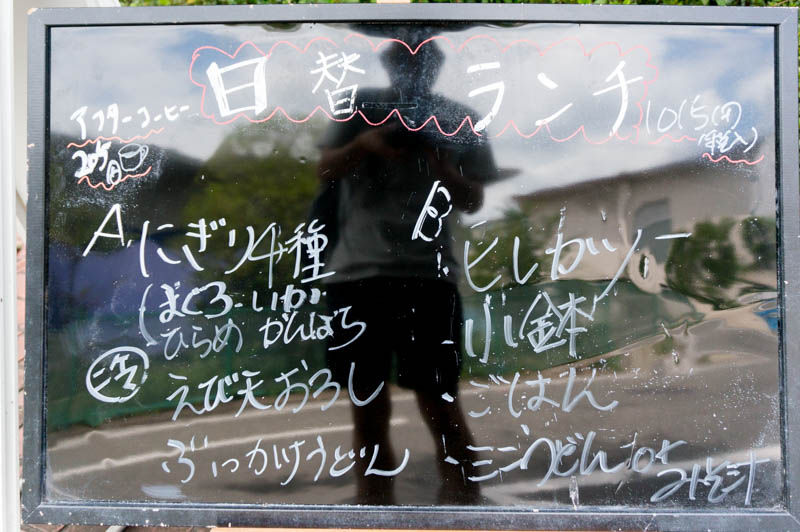 日替ランチ 1015円
(税込)
アフターコーヒー
205円
A.にぎり4種
(まぐろ・いか・
ひらめ かんぱち
冷 えび天おろし
ぶっかけうどん
B
・ヒレカツ
・小鉢
・ごはん
・ミニうどん or
みそ汁